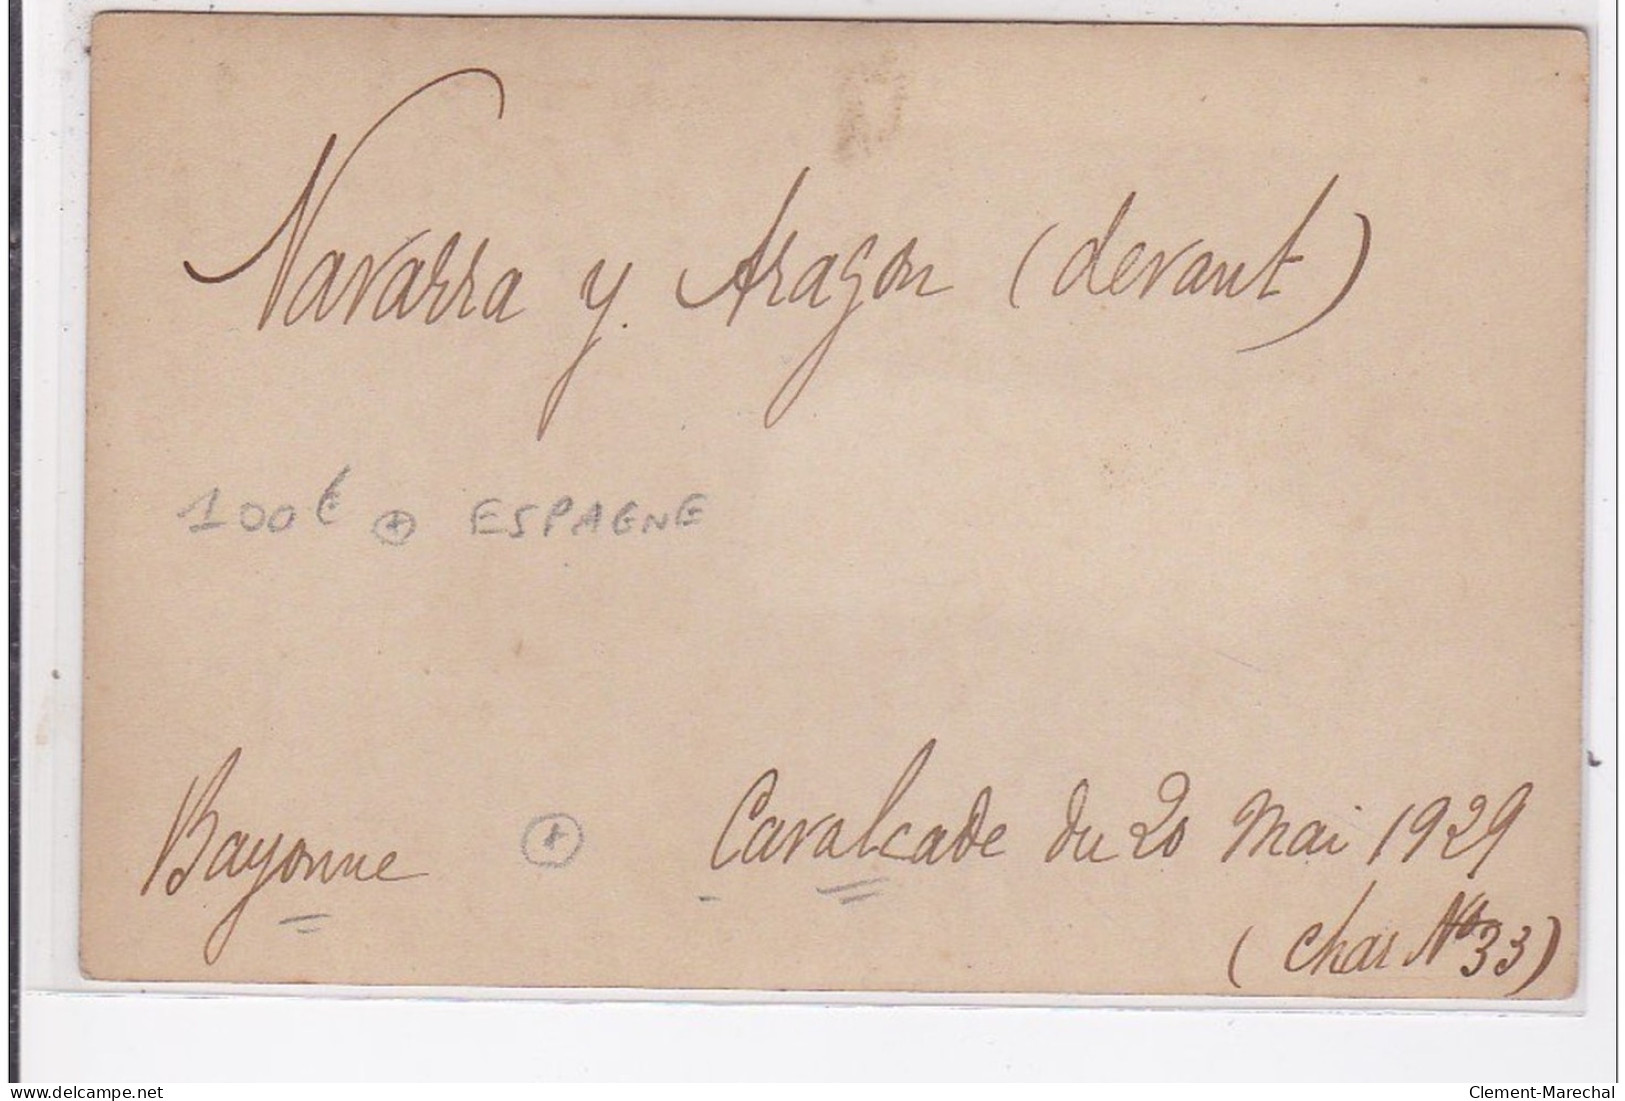 Navarra y Aragon (devant)
100€ + ESPAGNE
Bayonne + Cavalcade du 20 Mai 1929
(char No 33)
delcampe.net
Clement-Marechal